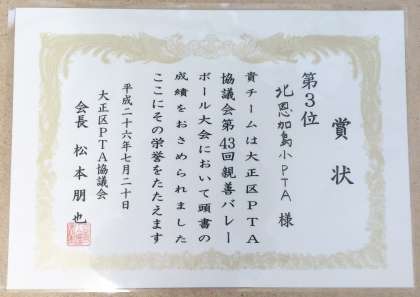 賞状
第3位
北恩加島小PTA 様
貴チームは大正区PTA
協議会第43回親善バレー
ボール大会において頭書の
成績をおさめられました
ここにその栄誉をたたえます
平成二十六年七月二十日
大正区PTA協議会
会長 松本朋也